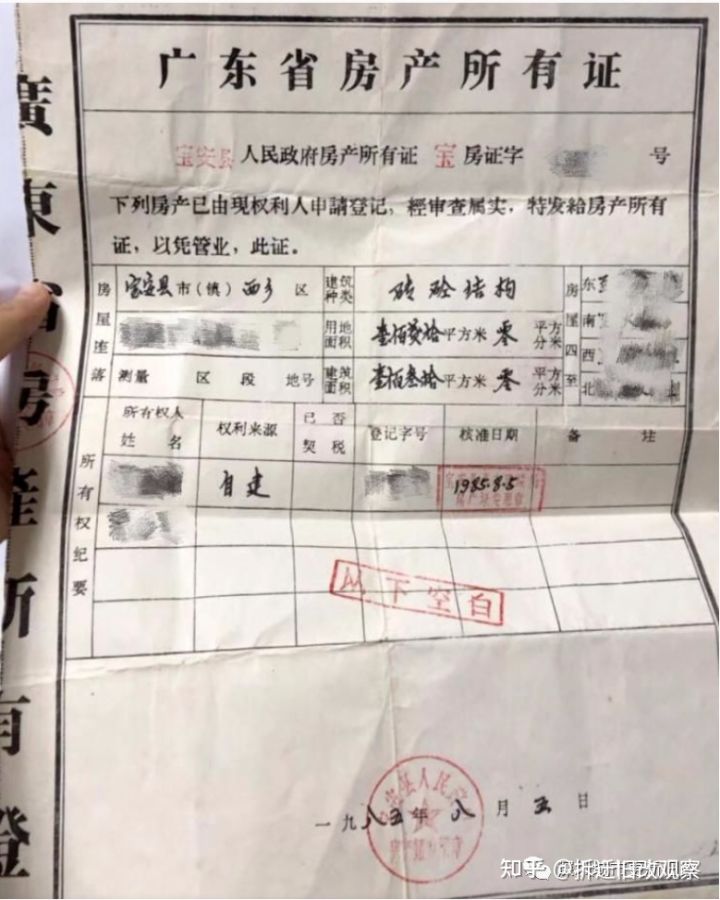 广东省房产所有证
宝安县人民政府房产所有证 宝 房证字 号
下列房产已由现权利人申請登记，經审查属实，特发給房产所有
证，以凭管业，此证。
房屋座落 宝安县市（镇）西乡 区 建筑种类 砖砼结构 房屋四至 东
用地面积 壹佰贰拾平方米 零 平方分米 南
西
测量 区 段 地号 建筑面积 壹佰叁拾平方米 零 平方分米 北
所有权纪要 所有权人姓名 权利来源 已否契税 登记字号 核准日期 备 注
自建 1985.8.5
以下空白
一九八五年 八 月 五 日
廣東省房產所有證
知乎 @拆迁旧改观察